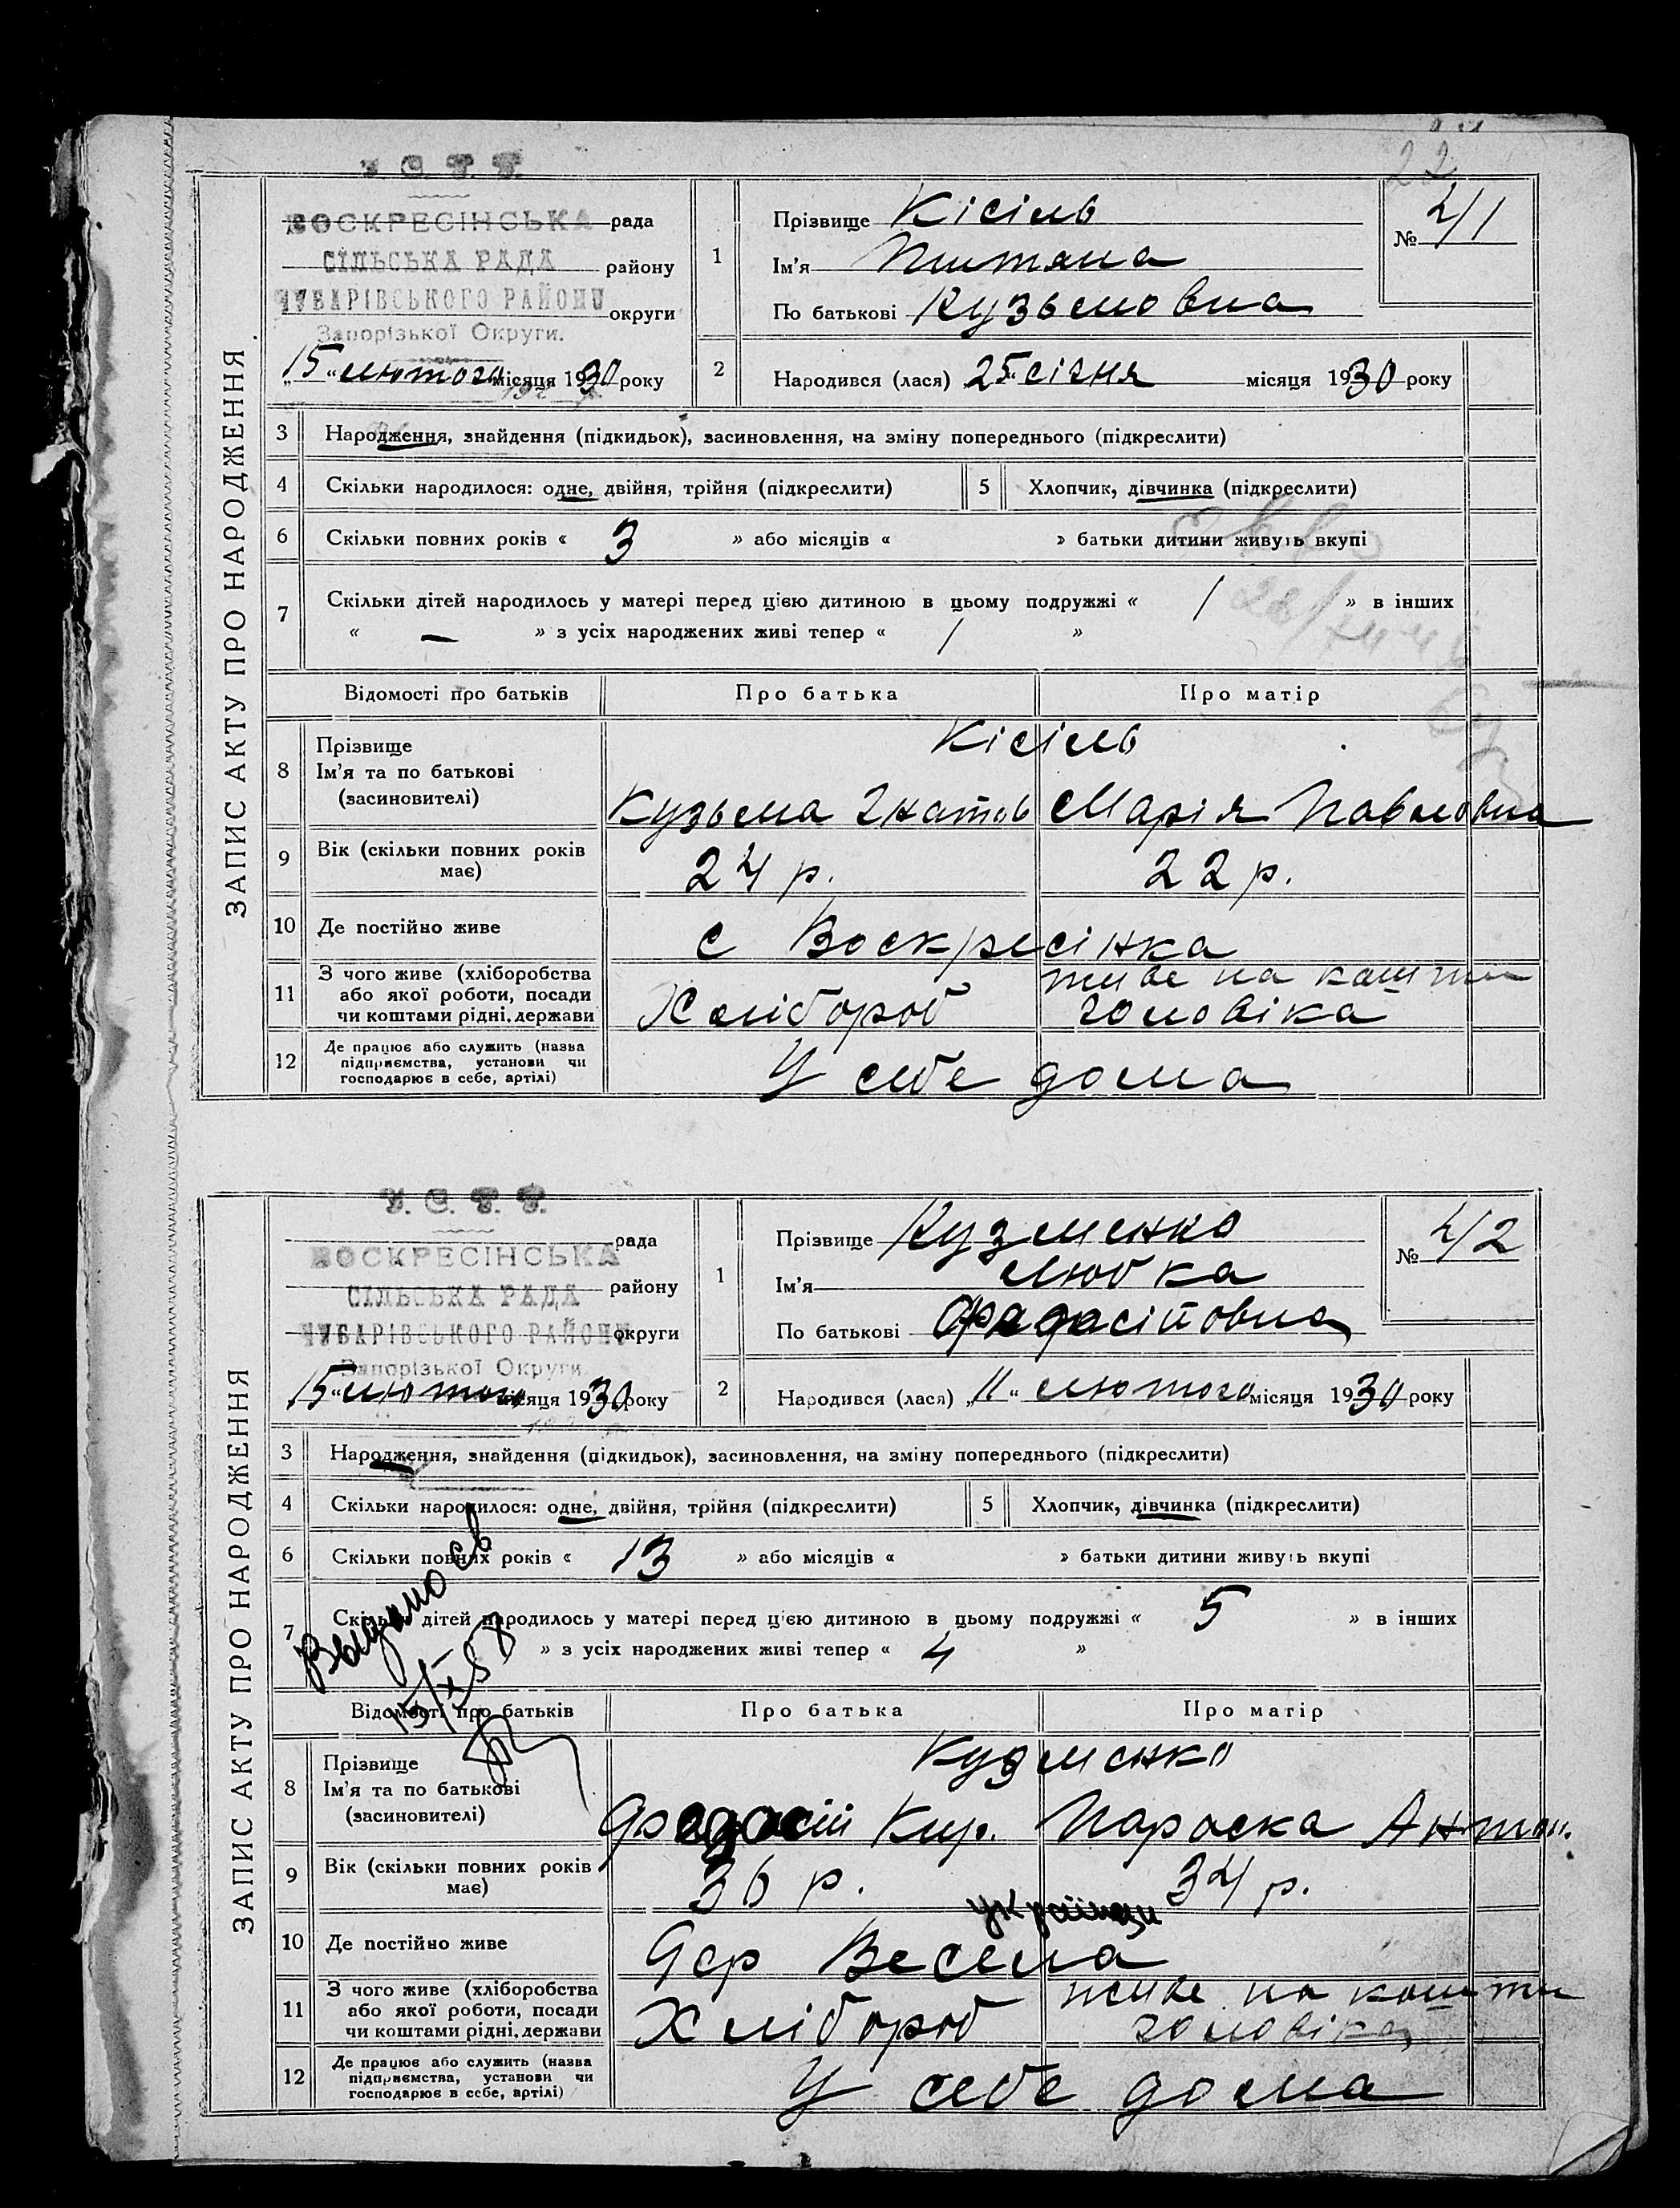 22
У. С. Р. Р.
ВОСКРЕСІНСЬКА рада
СІЛЬСЬКА РАДА району
ЧУБАРІВСЬКОГО РАЙОНУ округи
Запорізької Округи.
„15“ лютого місяця 1930 року
ЗАПИС АКТУ ПРО НАРОДЖЕННЯ
1 Прізвище Кісіль
Ім'я
По батькові Кузьмовна
№ 41
2 Народився (лася) „25“ січня місяця 1930 року
3 Народження, знайдення (підкидьок), засиновлення, на зміну попереднього (підкреслити)
4 Скільки народилося: одне, двійня, трійня (підкреслити) 5 Хлопчик, дівчинка (підкреслити)
6 Скільки повних років « 3 » або місяців « » батьки дитини живуть вкупі
7 Скільки дітей народилось у матері перед цією дитиною в цьому подружжі « 1 » в інших
« — » з усіх народжених живі тепер « 1 »
Відомості про батьків Про батька Про матір
8 Прізвище Кісіль
Ім'я та по батькові
(засиновителі) Кузьма Гнатов Марія Павловна
9 Вік (скільки повних років має) 24 р. 22 р.
10 Де постійно живе с Воскресінка
11 З чого живе (хліборобства
або якої роботи, посади
чи коштами рідні, держави Хлібороб живе на кошти чоловіка
12 Де працює або служить (назва
підприємства, установи чи
господарює в себе, артілі) У себе дома
У. С. Р. Р.
ВОСКРЕСІНСЬКА рада
СІЛЬСЬКА РАДА району
ЧУБАРІВСЬКОГО РАЙОНУ округи
Запорізької Округи.
„15“ лютого місяця 1930 року
ЗАПИС АКТУ ПРО НАРОДЖЕННЯ
1 Прізвище Кузменко
Ім'я Любка
По батькові
№ 42
2 Народився (лася) „11“ лютого місяця 1930 року
3 Народження, знайдення (підкидьок), засиновлення, на зміну попереднього (підкреслити)
4 Скільки народилося: одне, двійня, трійня (підкреслити) 5 Хлопчик, дівчинка (підкреслити)
6 Скільки повних років « 13 » або місяців « » батьки дитини живуть вкупі
7 Скільки дітей народилось у матері перед цією дитиною в цьому подружжі « 5 » в інших
» з усіх народжених живі тепер « 4 »
Выдано св
15/XI 58
Відомості про батьків Про батька Про матір
8 Прізвище Кузменко
Ім'я та по батькові
(засиновителі) Кир. Параска Антон.
9 Вік (скільки повних років має) 36 р. 34 р.
українци
10 Де постійно живе Дер Весела
11 З чого живе (хліборобства
або якої роботи, посади
чи коштами рідні, держави Хлібороб живе на кошти чоловіка
12 Де працює або служить (назва
підприємства, установи чи
господарює в себе, артілі) У себе дома